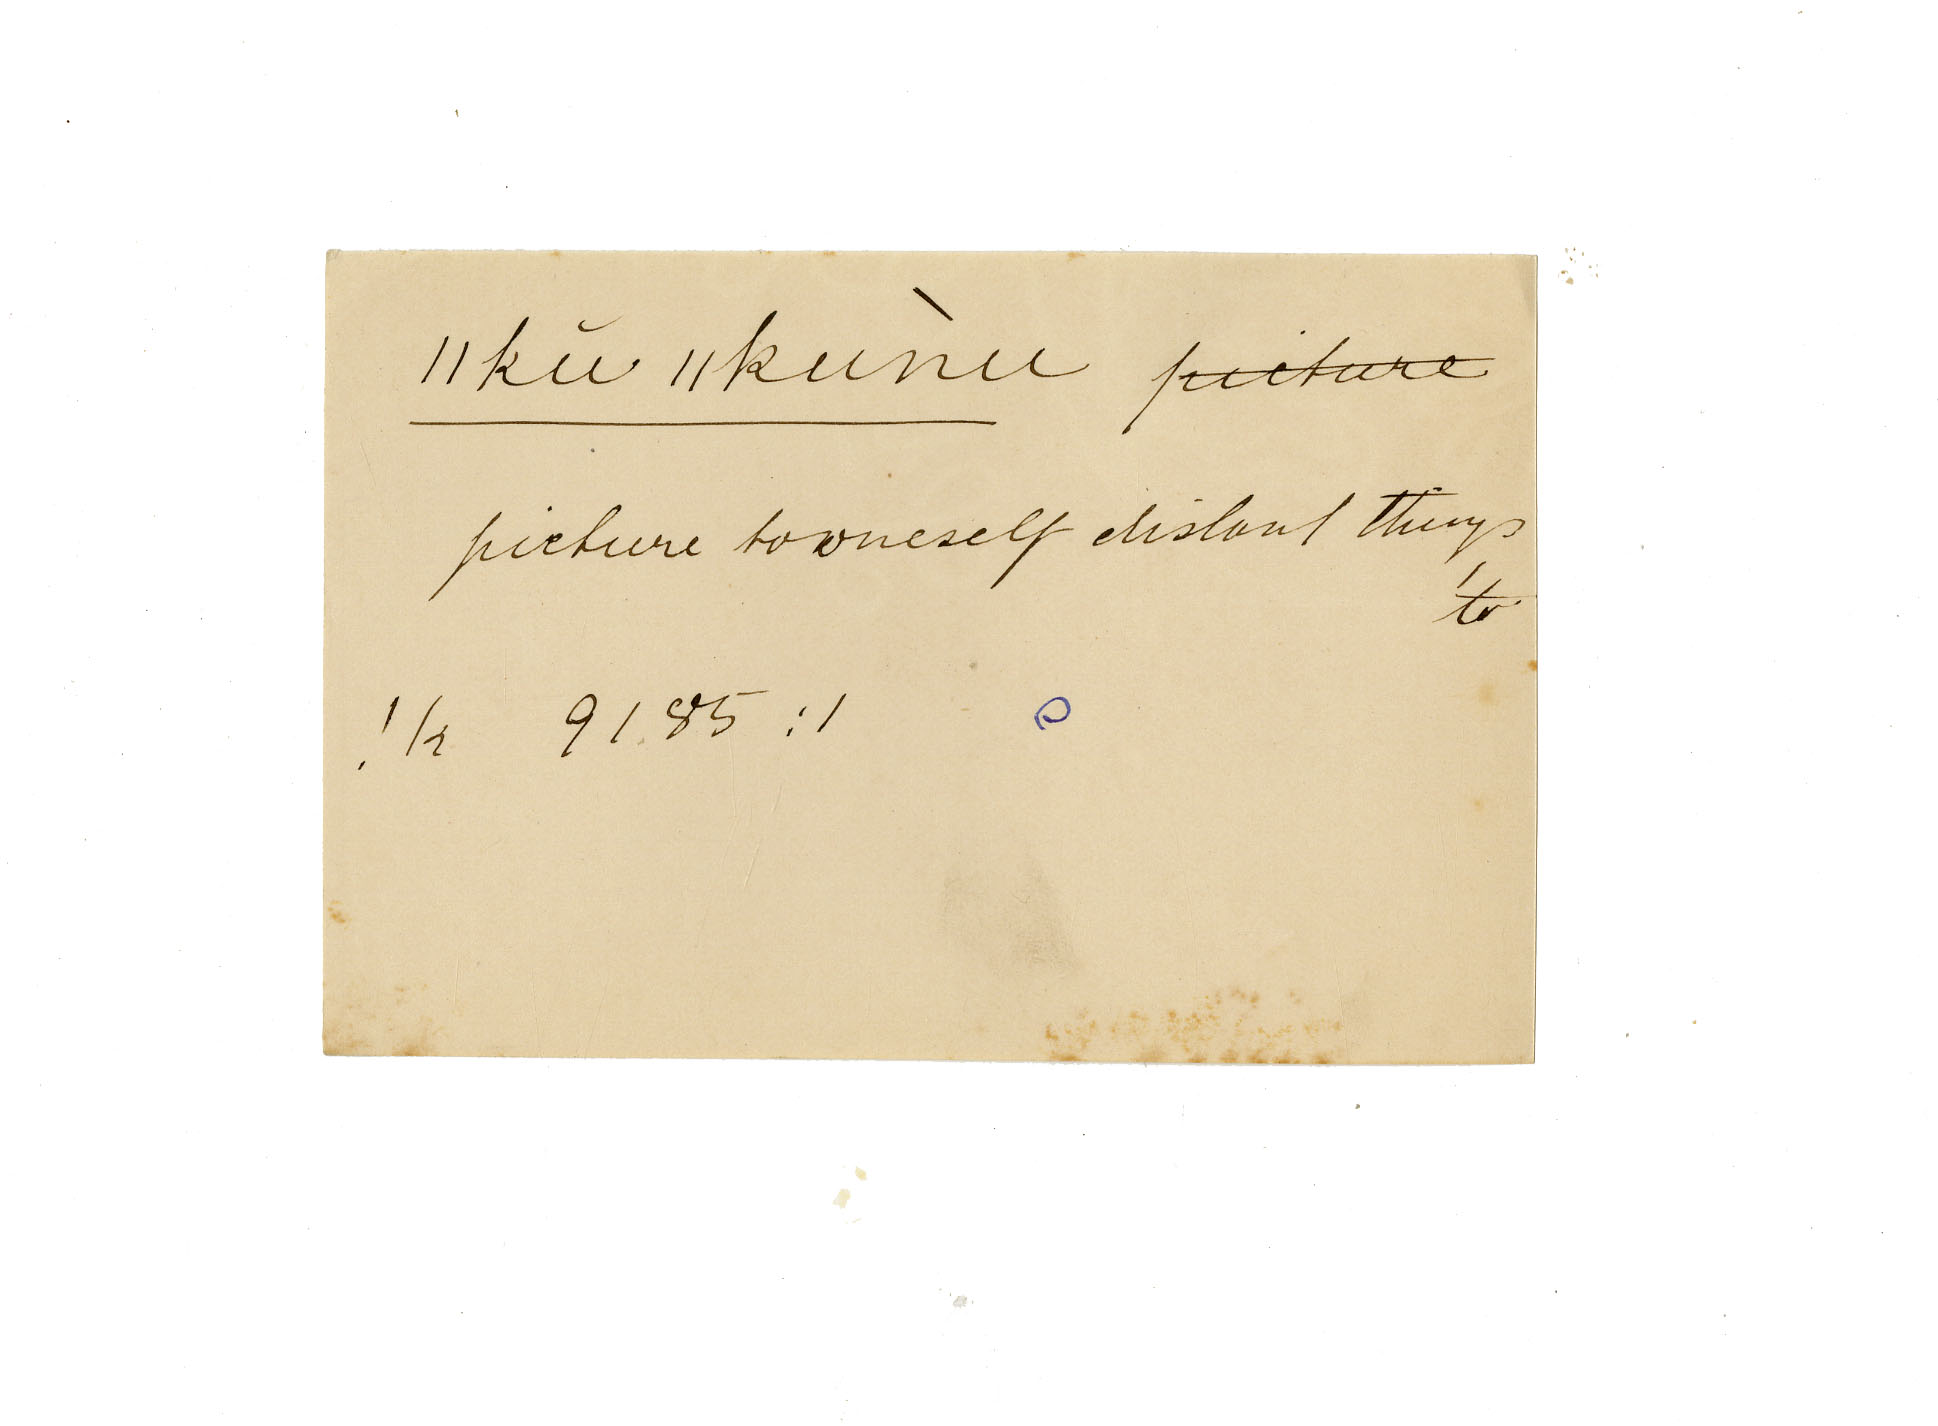 ǁkŭ ǁkunu̔̀ picture
picture to oneself distant things
to
!k 9185:1